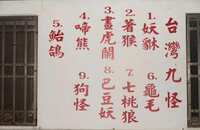 台灣九怪
1.妖獸 6.龜毛
2.著猴 7.七桃狼
3.畫虎闌 8.己豆妖
4.啼熊 9.狗怪
5.鮐鴿